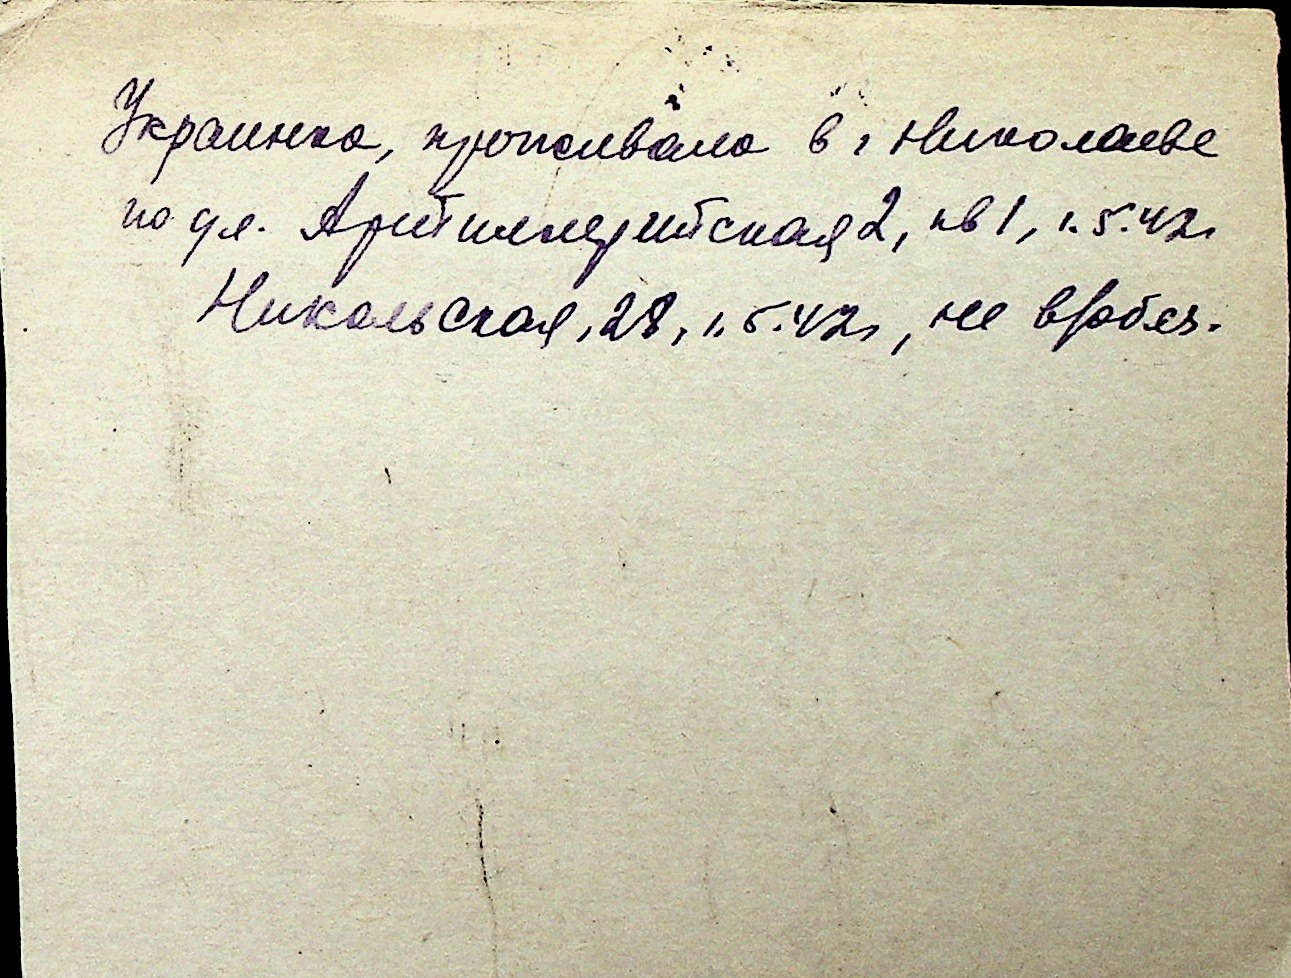 Украинка, проживала в г Николаеве
по ул. Артиллерийская 2, кв 1, 1.5.42г
Никольская, 28, 1.5.42г, не